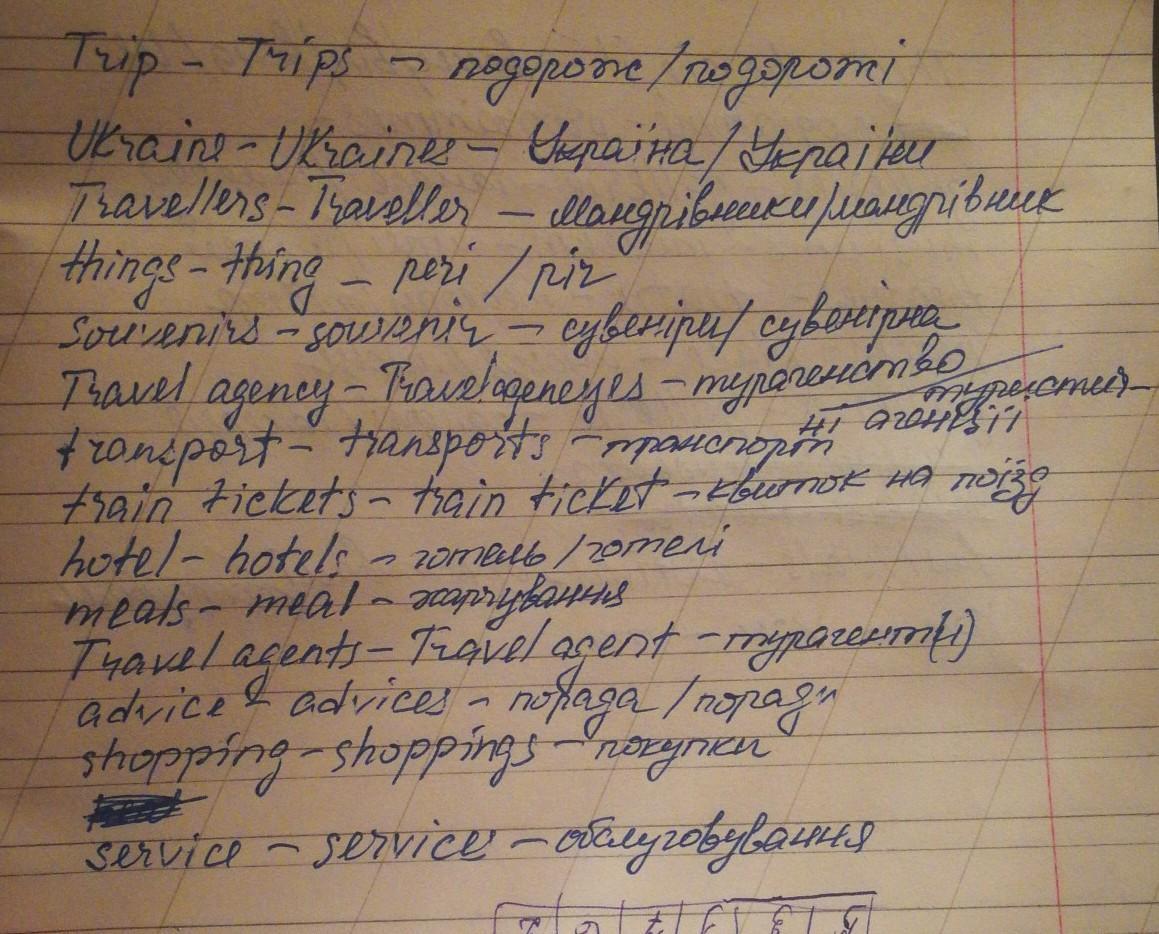 Trip - Trips - подорож/подорожі
Ukraine - Ukraines - Україна/України
Travellers - Traveller - мандрівники/мандрівник
things - thing - речі / річ
souvenirs - souvenir - сувеніри/ сувенірна
Travel agency - Travel agencyes - турагенство
туристич-
ні агенції
transport - transports - транспорт
train tickets - train ticket - квиток на поїзд
hotel - hotels - готель/готелі
meals - meal - харчування
Travel agents - Travel agent - турагент(и)
advice - advices - порада / поради
shopping - shoppings - покупки
service - services - обслуговування